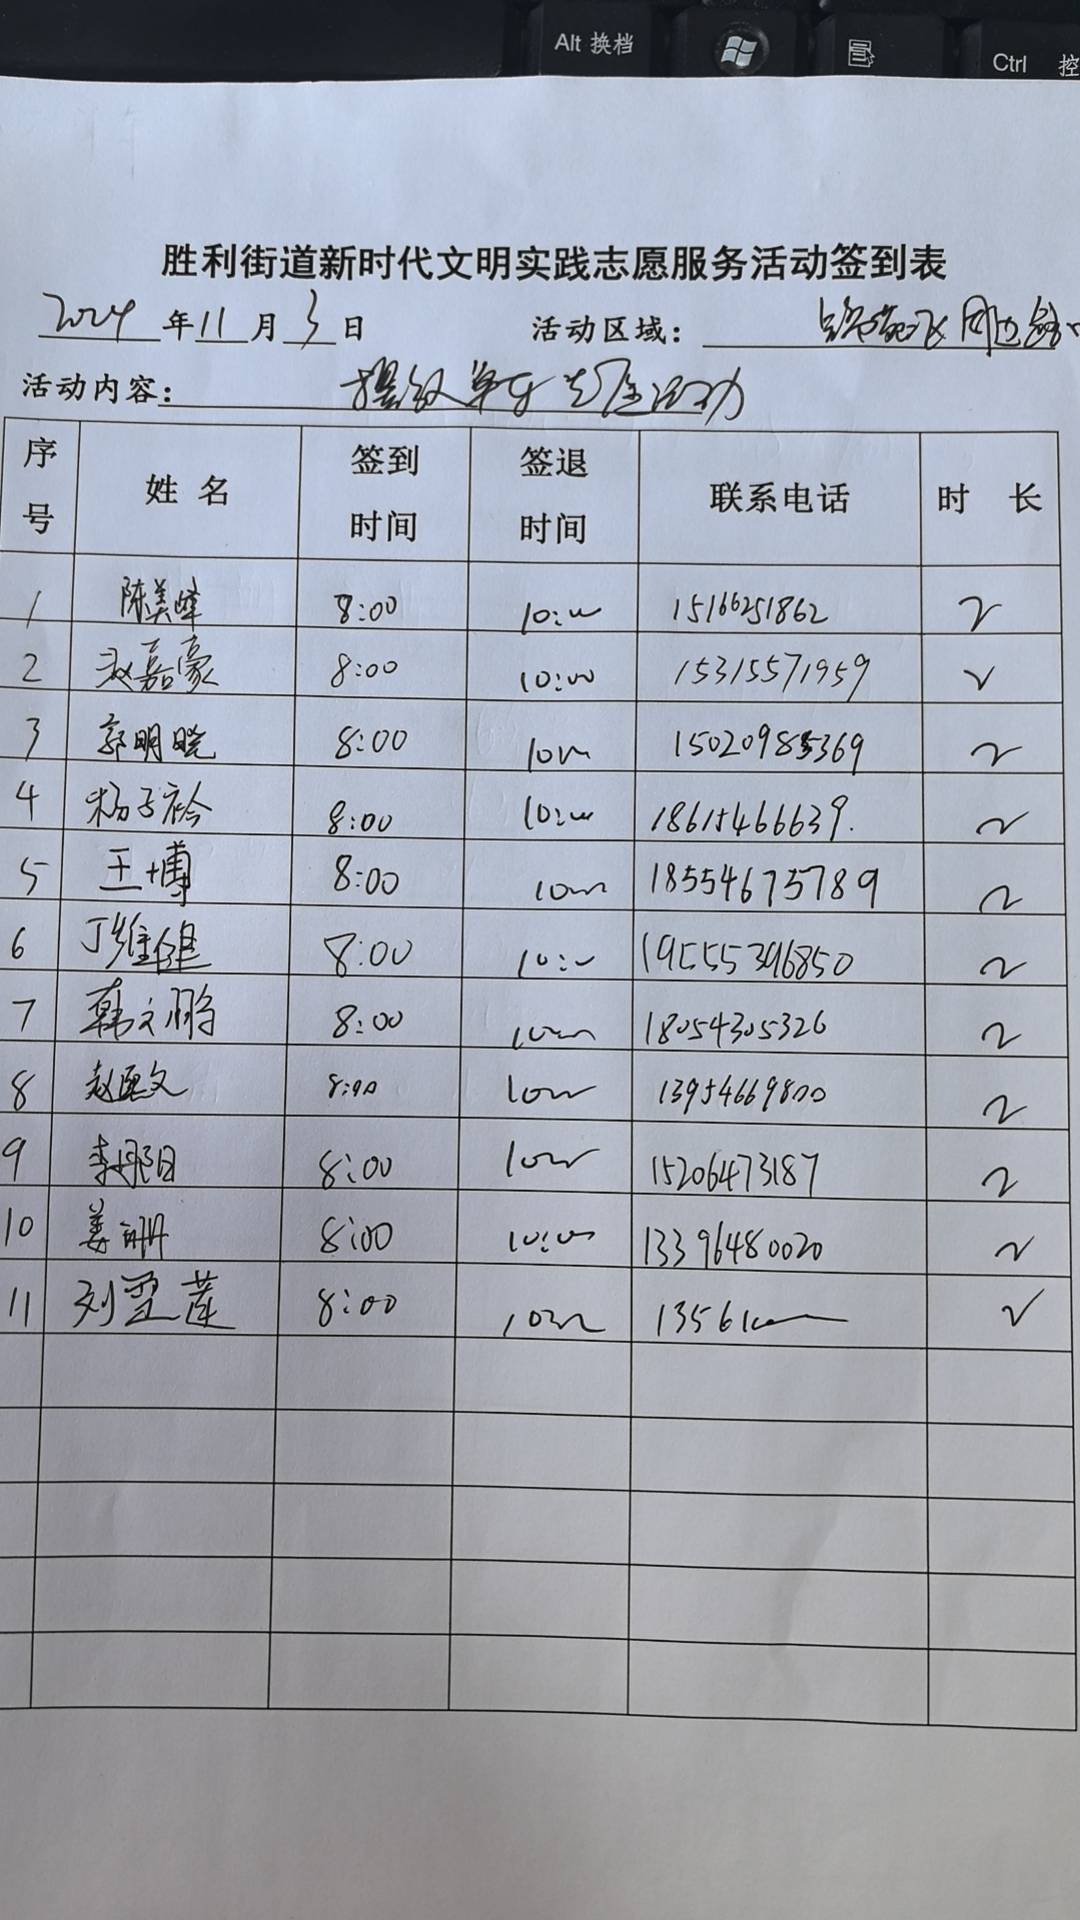 Alt 换档
Ctrl 控
胜利街道新时代文明实践志愿服务活动签到表
2024 年 11 月 3 日 活动区域： 周边
活动内容： 摆放单车志愿活动
序号 姓名 签到时间 签退时间 联系电话 时 长
1 陈美峰 8:00 10:00 15166251862 2
2 赵嘉豪 8:00 10:00 15315571959 2
3 郭明晓 8:00 1000 15020985369 2
4 杨子衿 8:00 10:00 18615466639. 2
5 王博 8:00 1000 18554675789 2
6 丁维健 8:00 10:00 19555396850 2
7 韩文鹏 8:00 1000 18054305326 2
8 赵 文 8:00 1000 13954669800 2
9 李 阳 8:00 1000 15206473187 2
10 姜珊 8:00 10:00 13396480020 2
11 刘雪莲 8:00 1000 13561 2